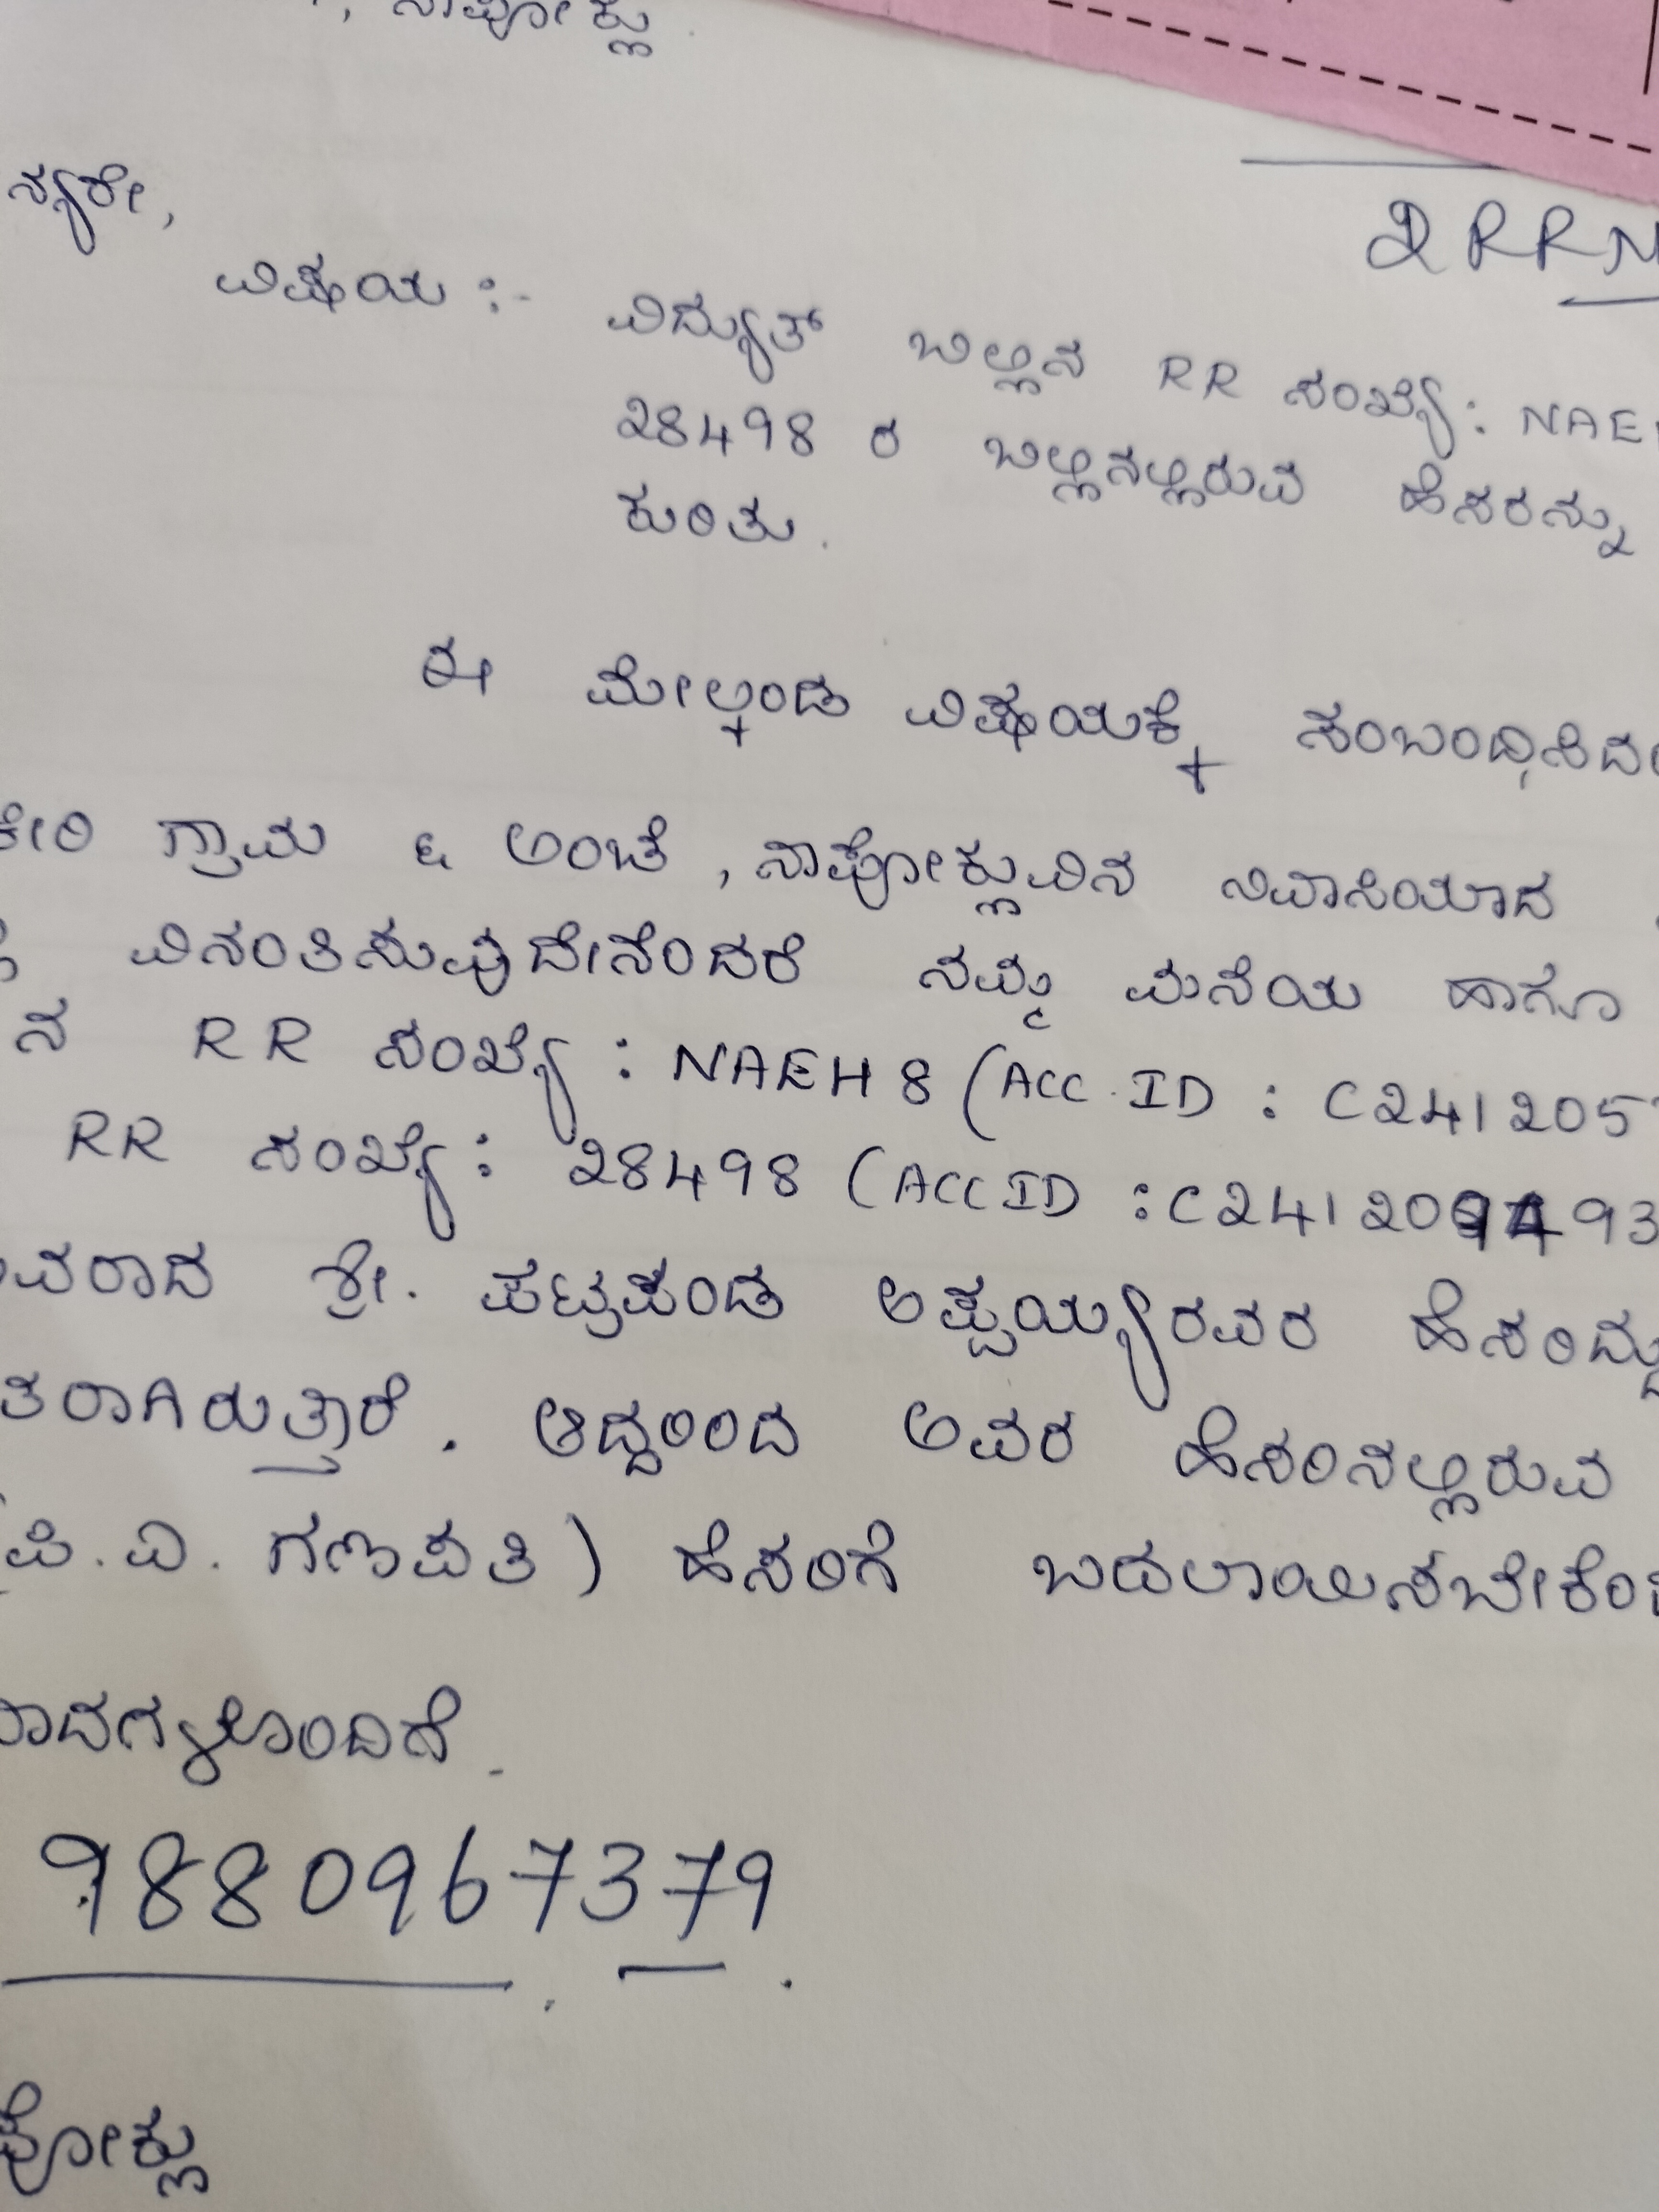 , ನಾಪೋಕ್ಲು
ನ್ಯರೇ,
2 RRN
ವಿಷಯ :- ವಿದ್ಯುತ್ ಬಿಲ್ಲಿನ RR ಸಂಖ್ಯೆ: NAE
28498 ರ ಬಿಲ್ಲಿನಲ್ಲಿರುವ ಹೆಸರನ್ನು
ಕುರಿತು.
ಈ ಮೇಲ್ಕಂಡ ವಿಷಯಕ್ಕೆ ಸಂಬಂಧಿಸಿದ
ಕೇರಿ ಗ್ರಾಮ & ಅಂಚೆ, ನಾಪೋಕ್ಲುವಿನ ನಿವಾಸಿಯಾದ
ವಿನಂತಿಸುವುದೇನೆಂದರೆ ನಮ್ಮ ಮನೆಯ ಹಾಗೂ
ನ RR ಸಂಖ್ಯೆ : NAEH 8 (ACC. ID : C241205
RR ಸಂಖ್ಯೆ: 28498 (ACC ID : C24120 93
ವರಾದ ಶ್ರೀ. ಪಟ್ರಪಂಡ ಅಪ್ಪಯ್ಯರವರ ಹೆಸರಿದ್ದು
ತರಾಗಿರುತ್ತಾರೆ. ಆದ್ದರಿಂದ ಅವರ ಹೆಸರಿನಲ್ಲಿರುವ
(ಪಿ.ಎ. ಗಣಪತಿ) ಹೆಸರಿಗೆ ಬದಲಾಯಿಸಬೇಕೆಂ
ವಾದಗಳೊಂದಿಗೆ.
9880967379
ಪೋಕ್ಲು